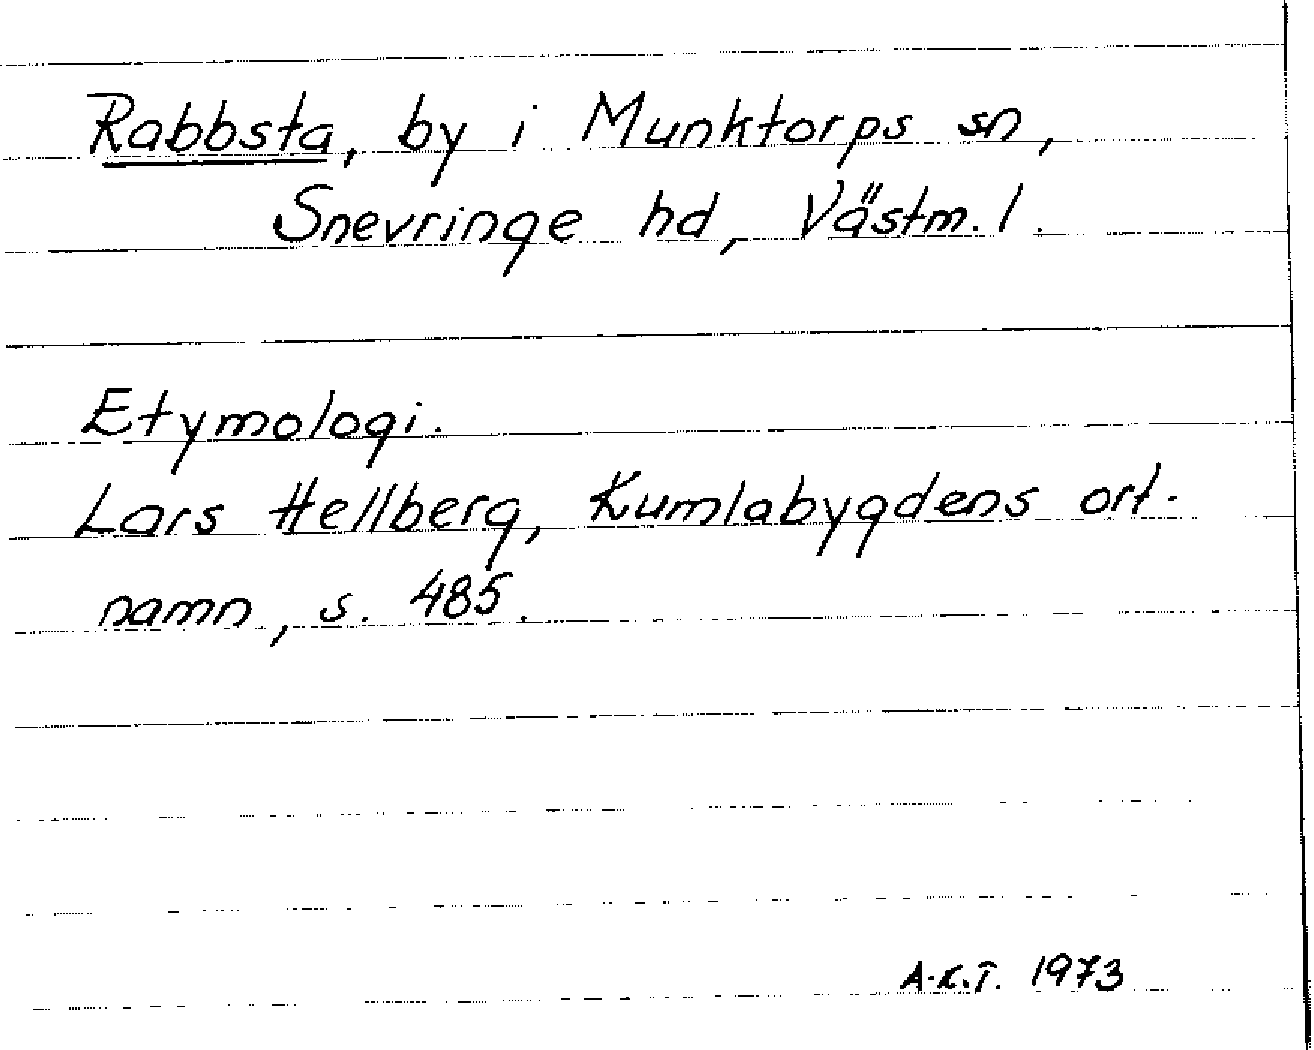 Rabbsta, by i Munktorps sn,
Snevringe hd, Västm. l.
Etymologi.
Lars Hellberg, Kumlabygdens ort-
namn, s. 485.
A-K.T. 1973